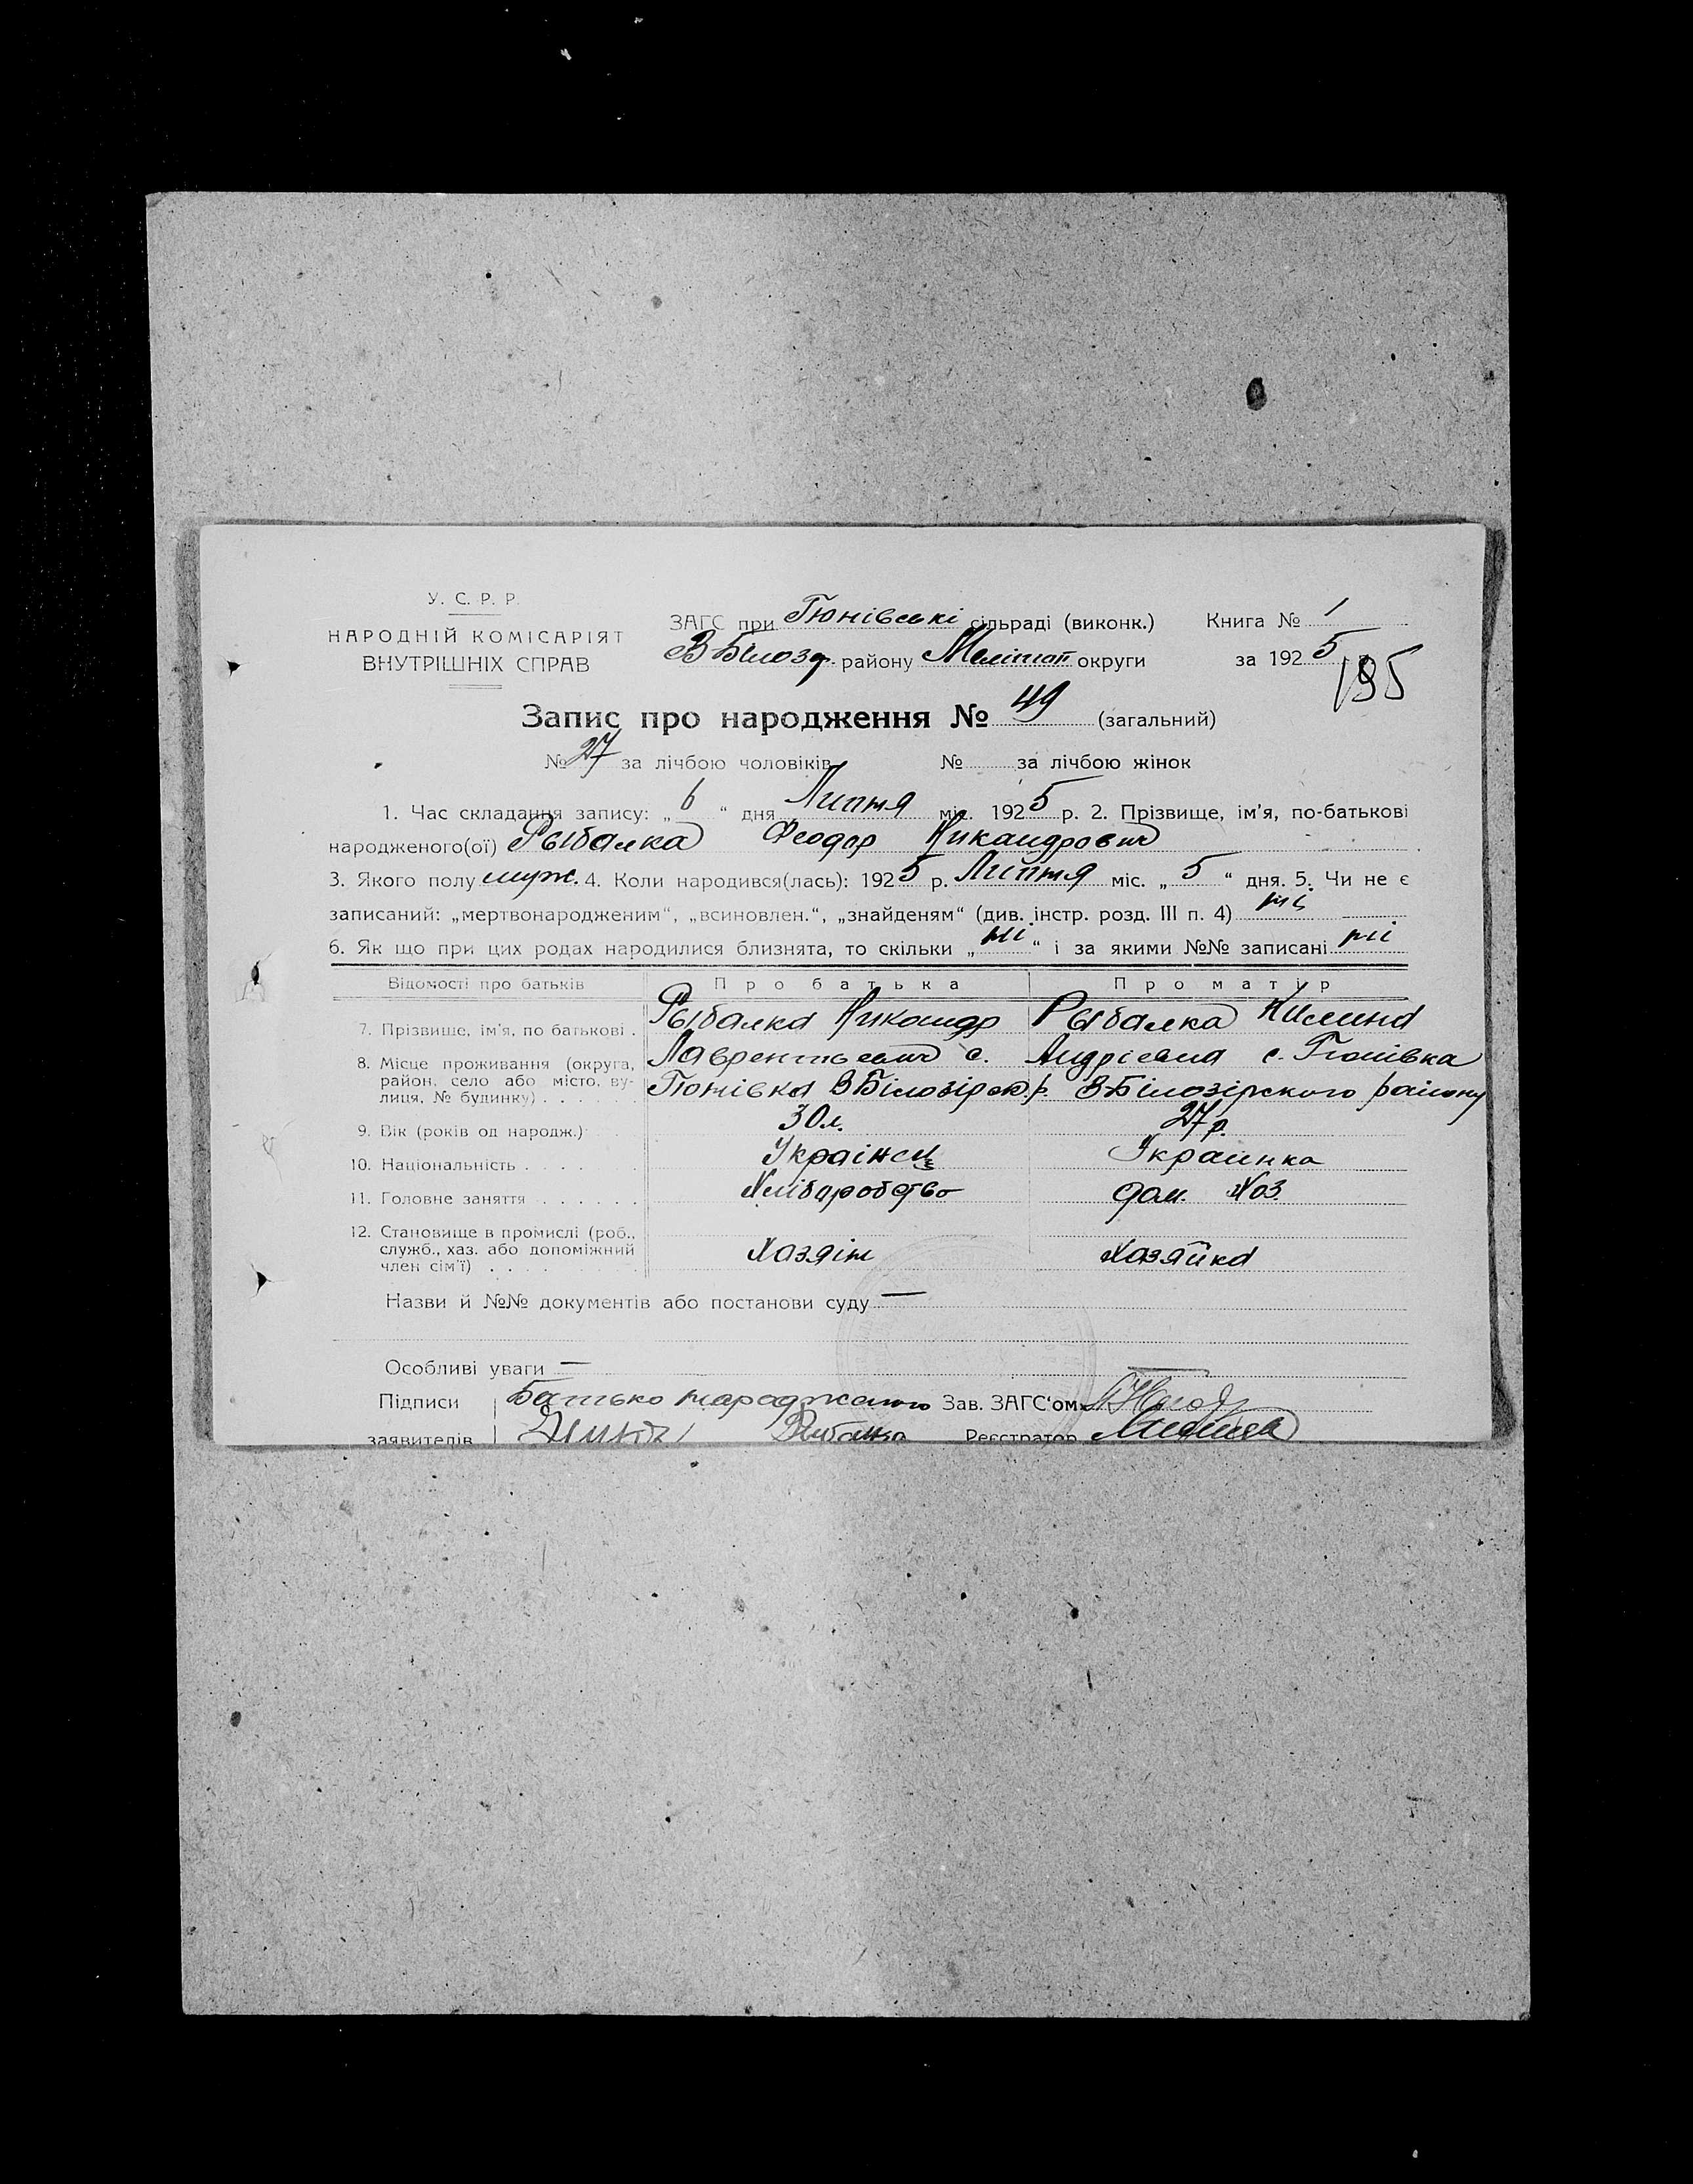 У. С. Р. Р.
НАРОДНІЙ КОМІСАРІЯТ
ВНУТРІШНІХ СПРАВ
ЗАГС при Гюнівські сільраді (виконк.) Книга № 1
В Білозр. району Мелітоп округи за 1925 р.
195
Запис про народження № 49 (загальний)
№ 27 за лічбою чоловіків № за лічбою жінок
1. Час складання запису: „ 6 “ дня Липтя міс. 1925 р. 2. Прізвище, ім’я, по-батькові
народженого(ої) Рыбалка Феодор Никандрович
3. Якого полу муж. 4. Коли народився(лась): 1925 р. Липтя міс. „ 5 “ дня. 5. Чи не є
записаний: „мертвонародженим“, „всиновлен.“, „знайденям“ (див. інстр. розд. III п. 4) ні
6. Як що при цих родах народилися близнята, то скільки „ ні “ і за якими №№ записані ні
Відомості про батьків Про батька Про матір
7. Прізвище, ім’я, по батькові . Рыбалка Никандр Рыбалка
8. Місце проживання (округа, район, село або місто, вулиця, № будинку) Лаврентьевич с. Андріевна с. Гюнівка
Гюнівка В Білозірск. р. В-Білозірского району
9. Вік (років од народж.) 30 л. 27 р.
10. Національність . . . . Українец Украинка
11. Головне заняття . . . . . . Хліборобство дом. хоз.
12. Становище в промислі (роб., служб., хаз. або допоміжний член сім’ї) . . . Хазяін Хазяйка
Назви й №№ документів або постанови суду —
Особливі уваги —
Підписи Батько народженого Зав. ЗАГС’ом
заявителів Рибалка Реєстратор